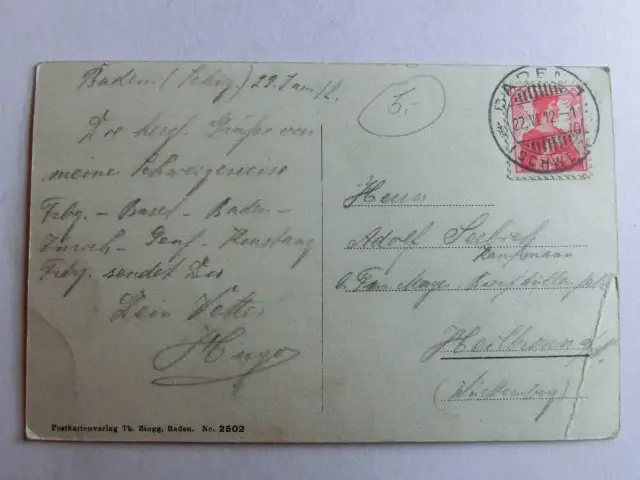 Baden (Schz.) 22. Juni 12.
5.-
Die herzl. Grüße von
meine Schweizerreise
Frbg. - Basel - Baden -
Zürich - Genf - Konstanz
Frbg. sendet Dir
Dein Vetter
Hugo
BADEN
22.VI.12
(SCHWEIZ)
Herrn
Adolf
Kaufmann
Heilbronn
(Württemberg)
Postkartenverlag Th. Zingg, Baden. No. 2502